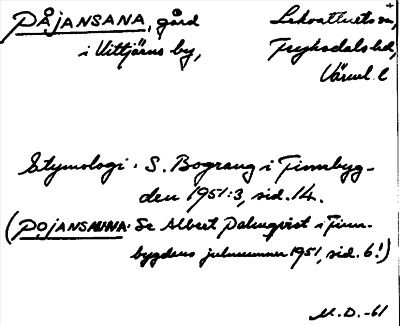 PÅJANSANA, gård Lekvattnets sn,
i Vittjärns by, Fryksdals hd,
Värml. l
Etymologi: S. Bograng i Finnbyg-
den 1951:3, sid. 14.
(POJANSMINA: Se Albert Palmqvist i Finn-
bygdens julnummer 1951, sid. 6!)
M.D.-61